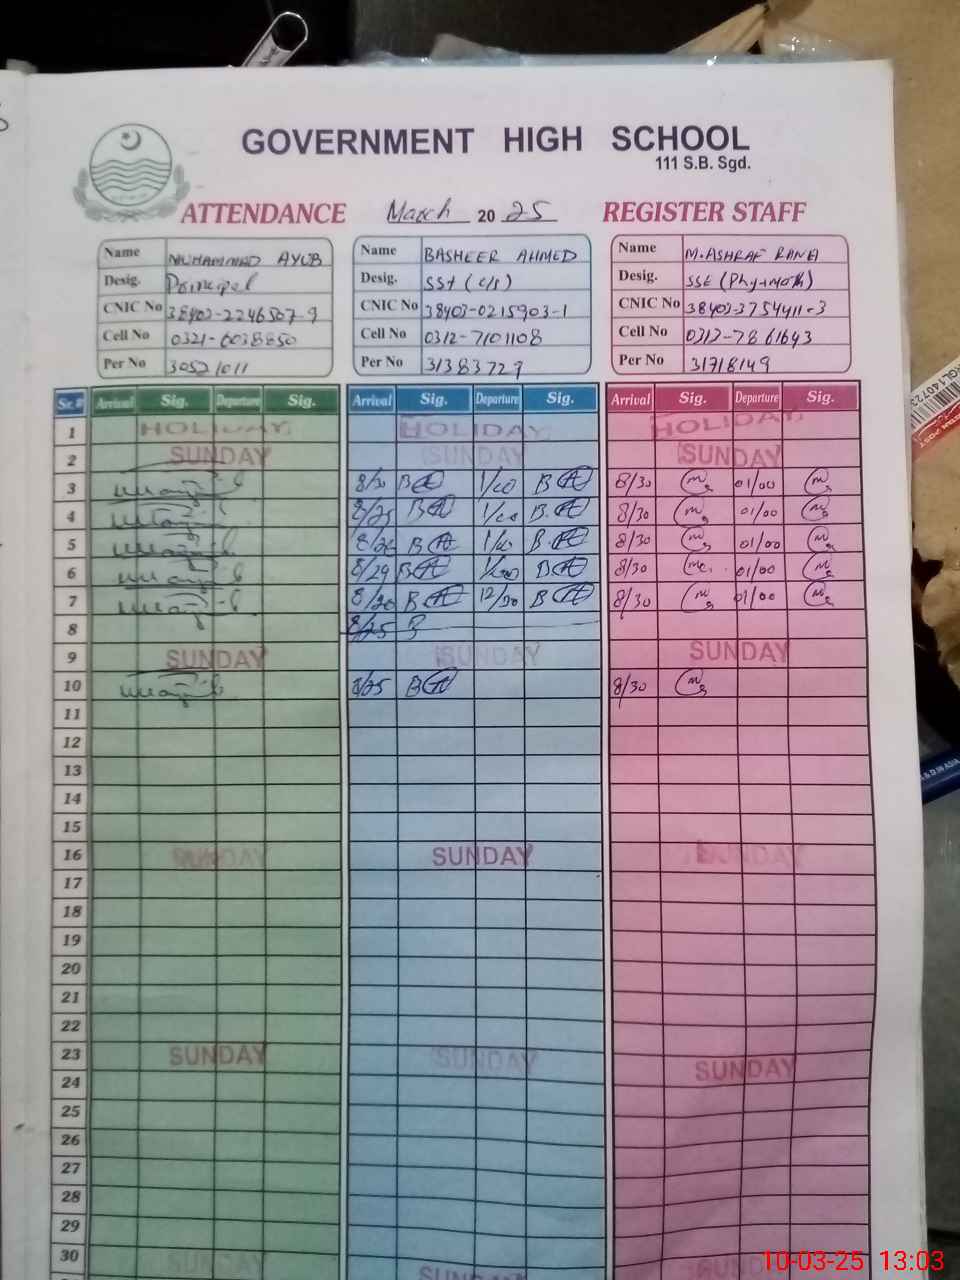 GOVERNMENT HIGH SCHOOL
111 S.B. Sgd.
ATTENDANCE March 2025 REGISTER STAFF
Name MUHAMMAD AYUB Name BASHEER AHMED Name M.ASHRAF RANA
Desig. Principal Desig. SST (C/S) Desig. SSt (Phy+Math)
CNIC No 38403-2246507-9 CNIC No 38403-0215903-1 CNIC No 38403-3754411-3
Cell No 0321-6038850 Cell No 0312-7101108 Cell No 0312-7861643
Per No 30521011 Per No 31383729 Per No 31718149
Sr. # Arrival Sig. Departure Sig. Arrival Sig. Departure Sig. Arrival Sig. Departure Sig.
1 HOLIDAY HOLIDAY HOLIDAY
2 SUNDAY SUNDAY SUNDAY
3 8/30 BA 1/00 BA 8/30 01/00
4 8/25 BA 1/00 BA 8/30 01/00
5 8/26 BA 1/00 BA 8/30 01/00
6 8/29 BA 1/00 BA 8/30 01/00
7 8/20 BA 12/30 BA 8/30 01/00
8 8/25 B
9 SUNDAY SUNDAY SUNDAY
10 8/25 BA 8/30
11
12
13
14
15
16 SUNDAY SUNDAY SUNDAY
17
18
19
20
21
22
23 SUNDAY SUNDAY SUNDAY
24
25
26
27
28
29
30 SUNDAY SUNDAY SUNDAY
10-03-25 13:03